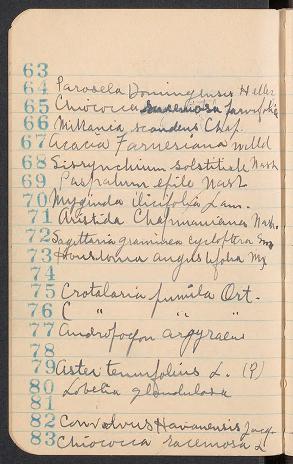 63
64 Parosela Domingensis Heller
65 Chiococca racemosa parvifolia
66 Mikania scandens Chap.
67 Acacia Farnesiana willd
68 Sisyrynchium solstitiale Nash
69 Paspalum epile Nash
70 Myginda ilicifolia Lam.
71 Aristida Chapmaniana Nash.
72 Sagittaria graminea cycloptera
73 Houstonia angustifolia Mx
74
75 Crotalaria pumila Ort.
76 C " " "
77 Andropogon argyraeus
78
79 Aster tenuifolius L. (?)
80 Lobelia glandulosa
81
82 Convolvus Havanensis Jacq.
83 Chiococca racemosa L